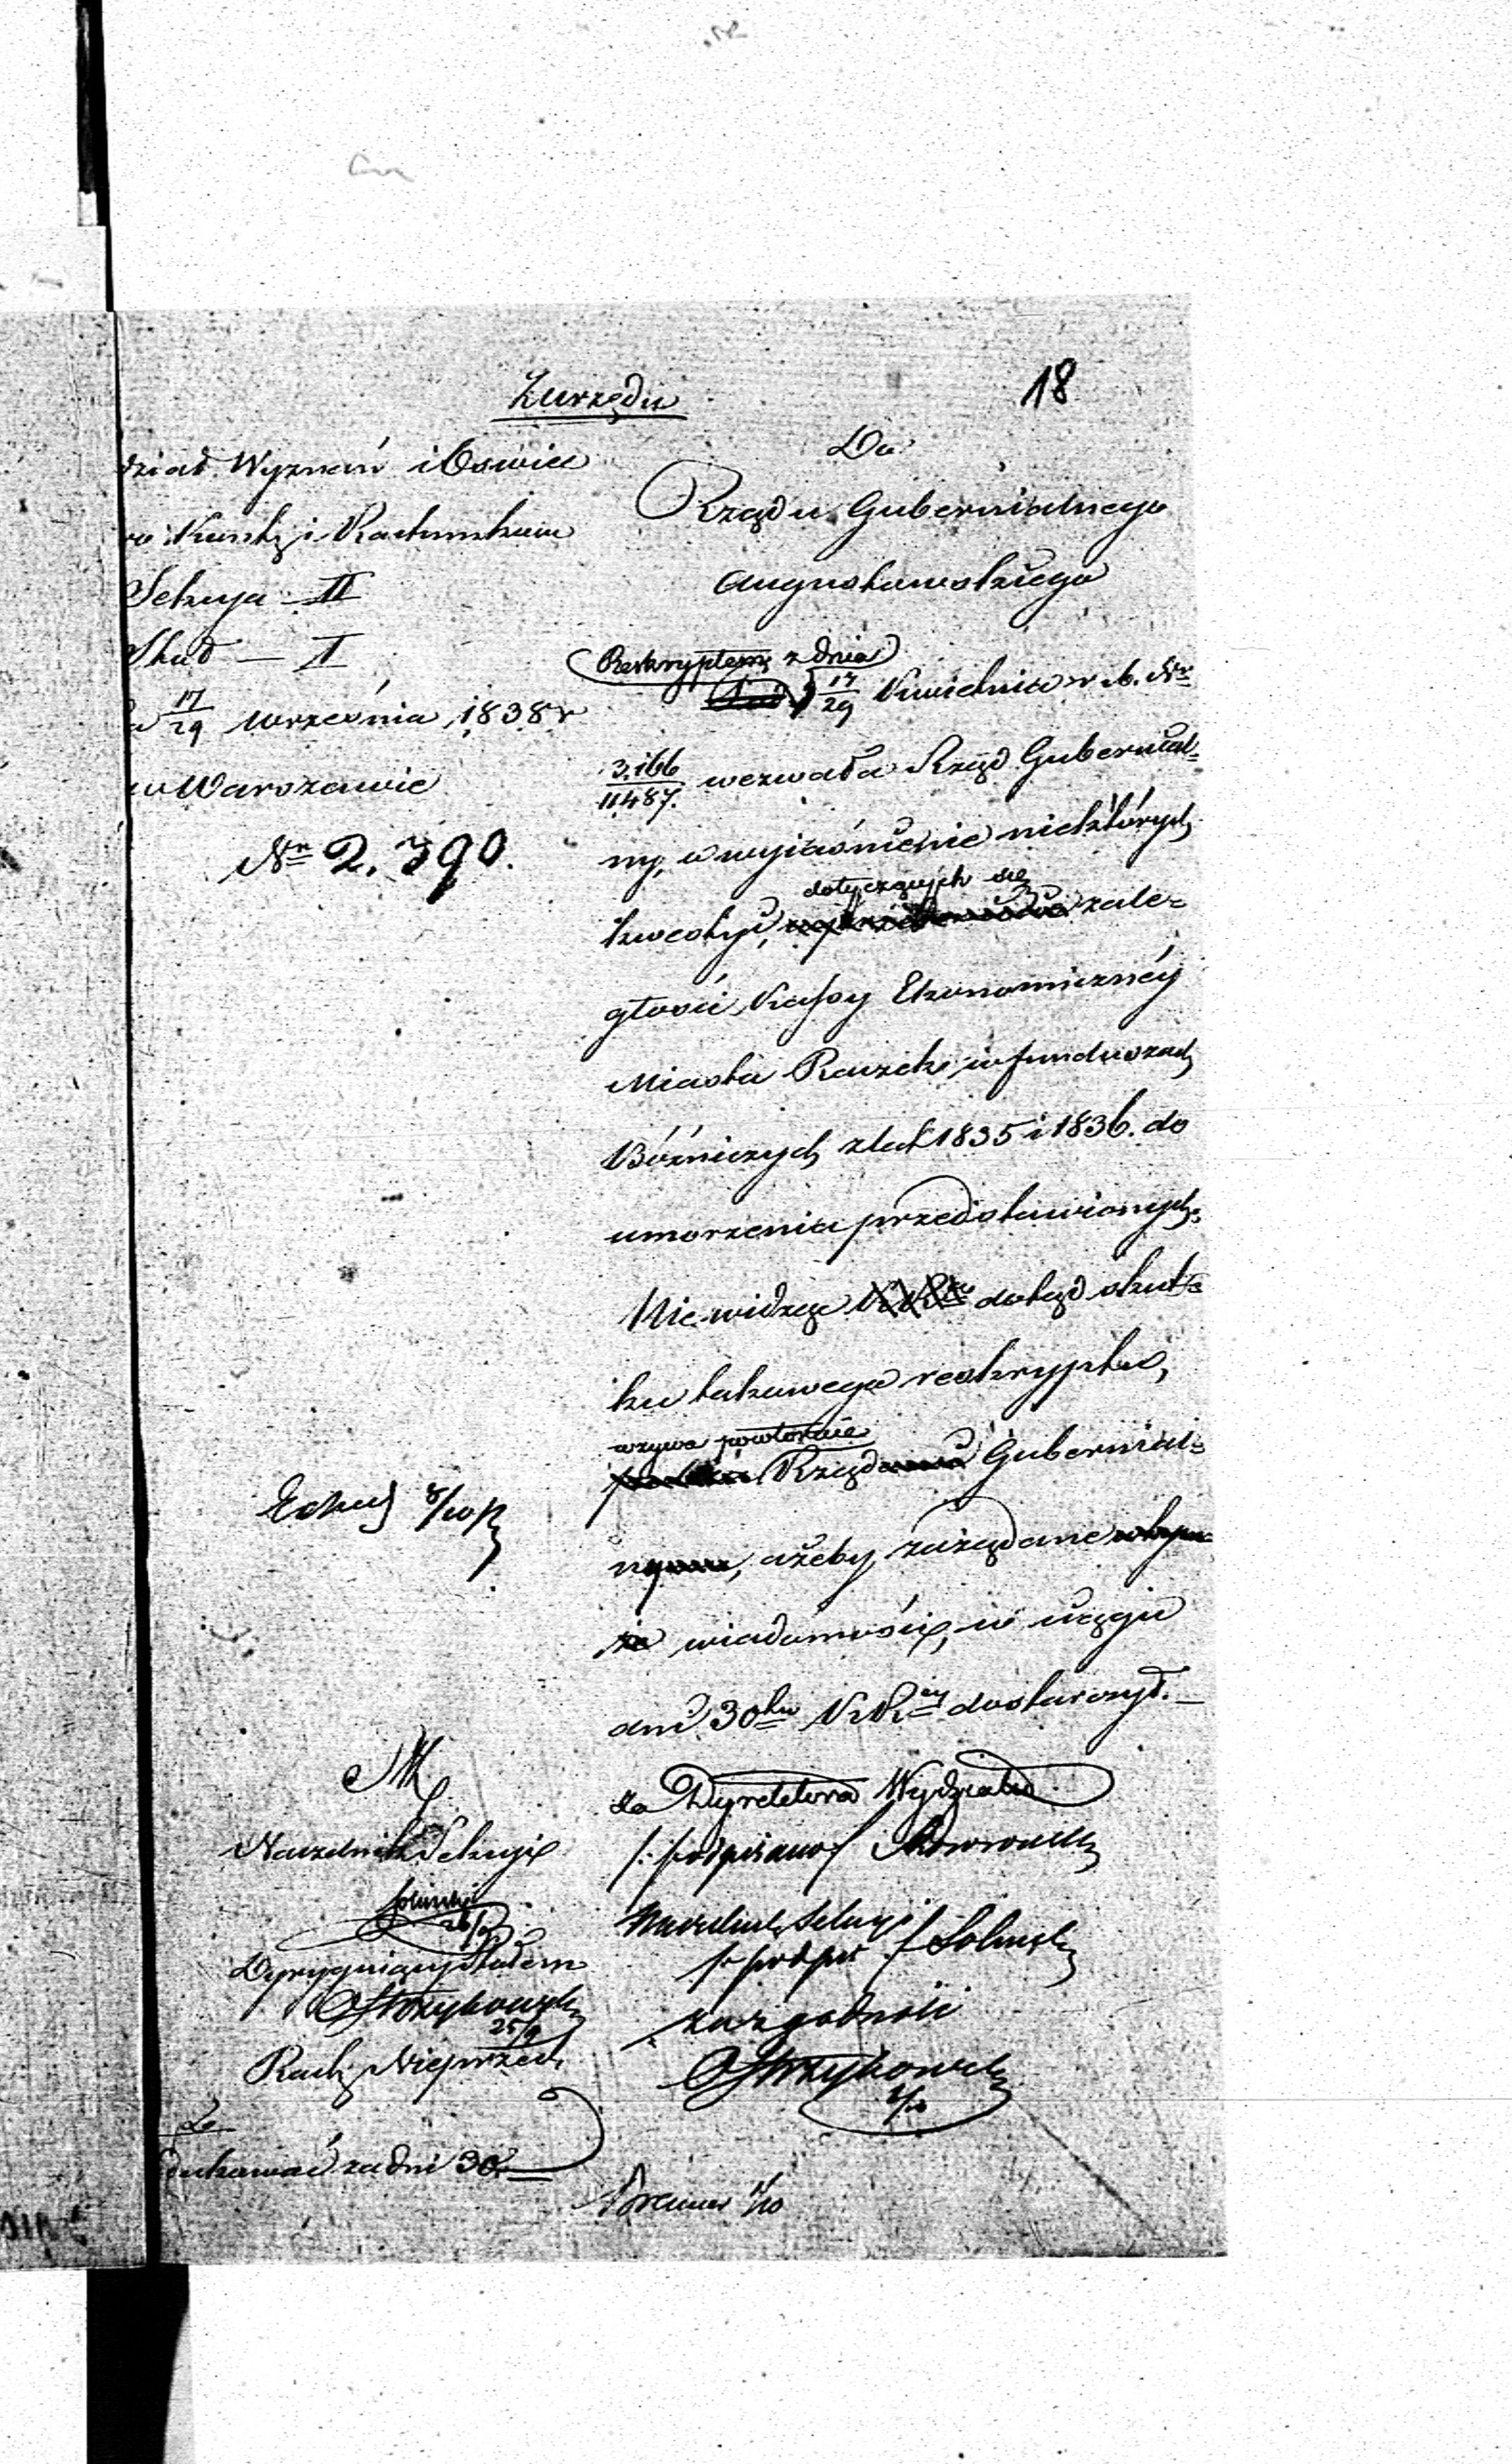 18
Z urzędu
dział Wyznań i Oświec
ro Kontr. i Rachunkowe
Sekcya II
Stół — I
17/29 Września 1838 r
w Warszawie
Nr 2.390.
Do
Rządu Gubernialnego
Augustowskiego
Reskryptem z dnia
17/29 Kwietnia r. b. Nr
3.166/11487. wezwała Rząd Gubernial-
ny, o wyjaśnienie niektórych
dotyczących się
kwestyi, zale-
głości Kassy Ekonomicznéy
Miasta Raczek w funduszach
Bóżniczych z lat 1835 i 1836. do
umorzenia przedstawionych.
Nie widząc dotąd skut-
ku takowego reskryptu,
wzywa powtórnie
Rząd Gubernial-
ny, ażeby zażądane
wiadomości, w ciągu
dni 30tu K. R. dostarczył.—
za Dyrektora Wydziału
/: podpisano /
Naczelnik Sekcyi
/: podpis /
za zgodność
Naczelnik Sekcyi
26/9
Dyrygujący Stołem
25/9
Rach. Nieprzec
dukować za dni 30.
1/10